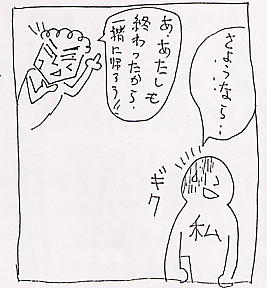 さようなら…
あ、あたしも
終わったから、
一緒に帰ろう!!
ギク
私